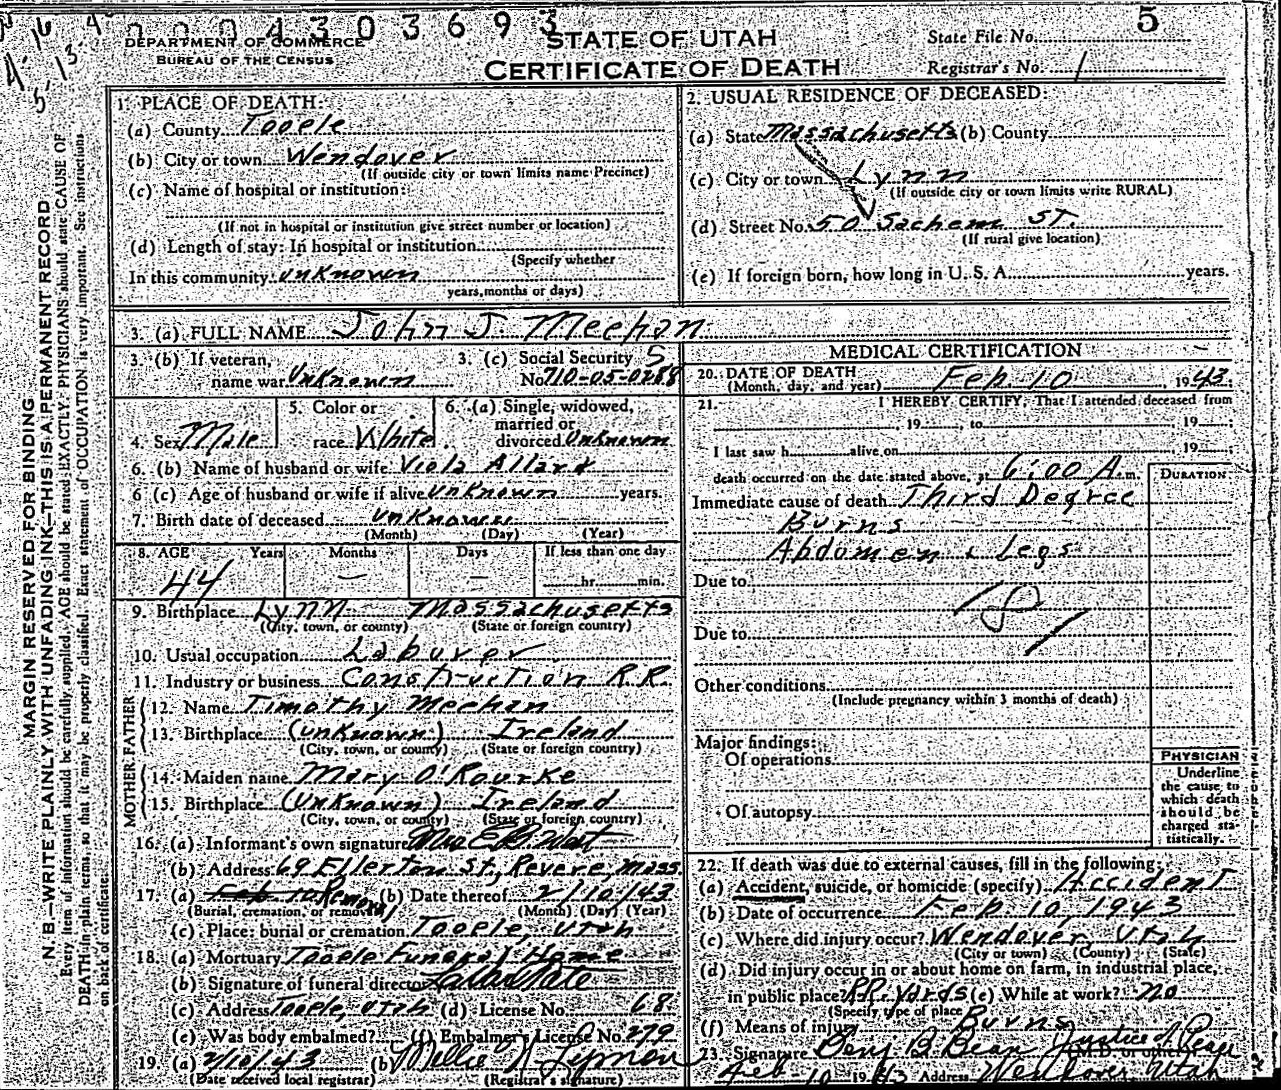 0 0 0 4 3 0 3 6 9 3
5
DEPARTMENT OF COMMERCE
BUREAU OF THE CENSUS
STATE OF UTAH
CERTIFICATE OF DEATH
State File No.
Registrar's No. 1
MARGIN RESERVED FOR BINDING
N. B.—WRITE PLAINLY WITH UNFADING INK—THIS IS A PERMANENT RECORD
Every item of information should be carefully supplied. AGE should be stated EXACTLY. PHYSICIANS should state CAUSE OF
DEATH in plain terms, so that it may be properly classified. Exact statement of OCCUPATION is very important. See instructions
on back of certificate.
1. PLACE OF DEATH:
(a) County Tooele
(b) City or town Wendover
(If outside city or town limits name Precinct)
(c) Name of hospital or institution:
(If not in hospital or institution give street number or location)
(d) Length of stay: In hospital or institution
(Specify whether
In this community unKnown
years, months or days)
2. USUAL RESIDENCE OF DECEASED:
(a) State Massachusetts (b) County
(c) City or town Lynn
(If outside city or town limits write RURAL)
(d) Street No. 50 Sachem ST.
(If rural give location)
(e) If foreign born, how long in U. S. A. years.
3. (a) FULL NAME John J. Meehan
3. (b) If veteran,
name war UnKnown
3. (c) Social Security
No. 710-05-0288
4. Sex Male
5. Color or
race White
6. (a) Single, widowed,
married or
divorced UnKnown
6. (b) Name of husband or wife Viola Allard
6 (c) Age of husband or wife if alive unKnown years.
7. Birth date of deceased unKnown
(Month) (Day) (Year)
8. AGE Years Months Days If less than one day
44 — — hr. min.
9. Birthplace Lynn Massachusetts
(City, town, or county) (State or foreign country)
10. Usual occupation Laburer
11. Industry or business Construction R.R.
FATHER
12. Name Timothy Meehan
13. Birthplace (unKnown) Ireland
(City, town, or county) (State or foreign country)
MOTHER
14. Maiden name Mary O'Rourke
15. Birthplace (UnKnown) Ireland
(City, town, or county) (State or foreign country)
16. (a) Informant's own signature Mrs E.B. West
(b) Address 69 Ellerton St, Revere, Mass.
17. (a) Feb 10 Removal (b) Date thereof 2/10/43
(Burial, cremation, or removal) (Month) (Day) (Year)
(c) Place: burial or cremation Tooele, Utah
18. (a) Mortuary Tooele Funeral Home
(b) Signature of funeral director
(c) Address Tooele, Utah (d) License No. 68
(e) Was body embalmed? (f) Embalmer's License No. 279
19. (a) 2/10/43 (b) Millie N. Lyman
(Date received local registrar) (Registrar's signature)
MEDICAL CERTIFICATION
20. DATE OF DEATH
(Month, day, and year) Feb 10, 1943
21. I HEREBY CERTIFY, That I attended deceased from
, 19 , to , 19 ;
I last saw h alive on , 19 ;
death occurred on the date stated above, at 6:00 A.m.
DURATION
Immediate cause of death Third Degree
Burns
Abdomen & Legs
Due to
181
Due to
Other conditions
(Include pregnancy within 3 months of death)
Major findings:
Of operations
Of autopsy
PHYSICIAN
Underline
the cause to
which death
should be
charged sta-
tistically.
22. If death was due to external causes, fill in the following:
(a) Accident, suicide, or homicide (specify) Accident
(b) Date of occurrence Feb 10, 1943
(c) Where did injury occur? Wendover Utah
(City or town) (County) (State)
(d) Did injury occur in or about home on farm, in industrial place,
in public place? RR. Yards (e) While at work? no
(Specify type of place)
(f) Means of injury Burns
23. Signature Benj B. Bean Justice of Peace
(M.D. or other)
Feb 10 1943 Address Wendover Utah